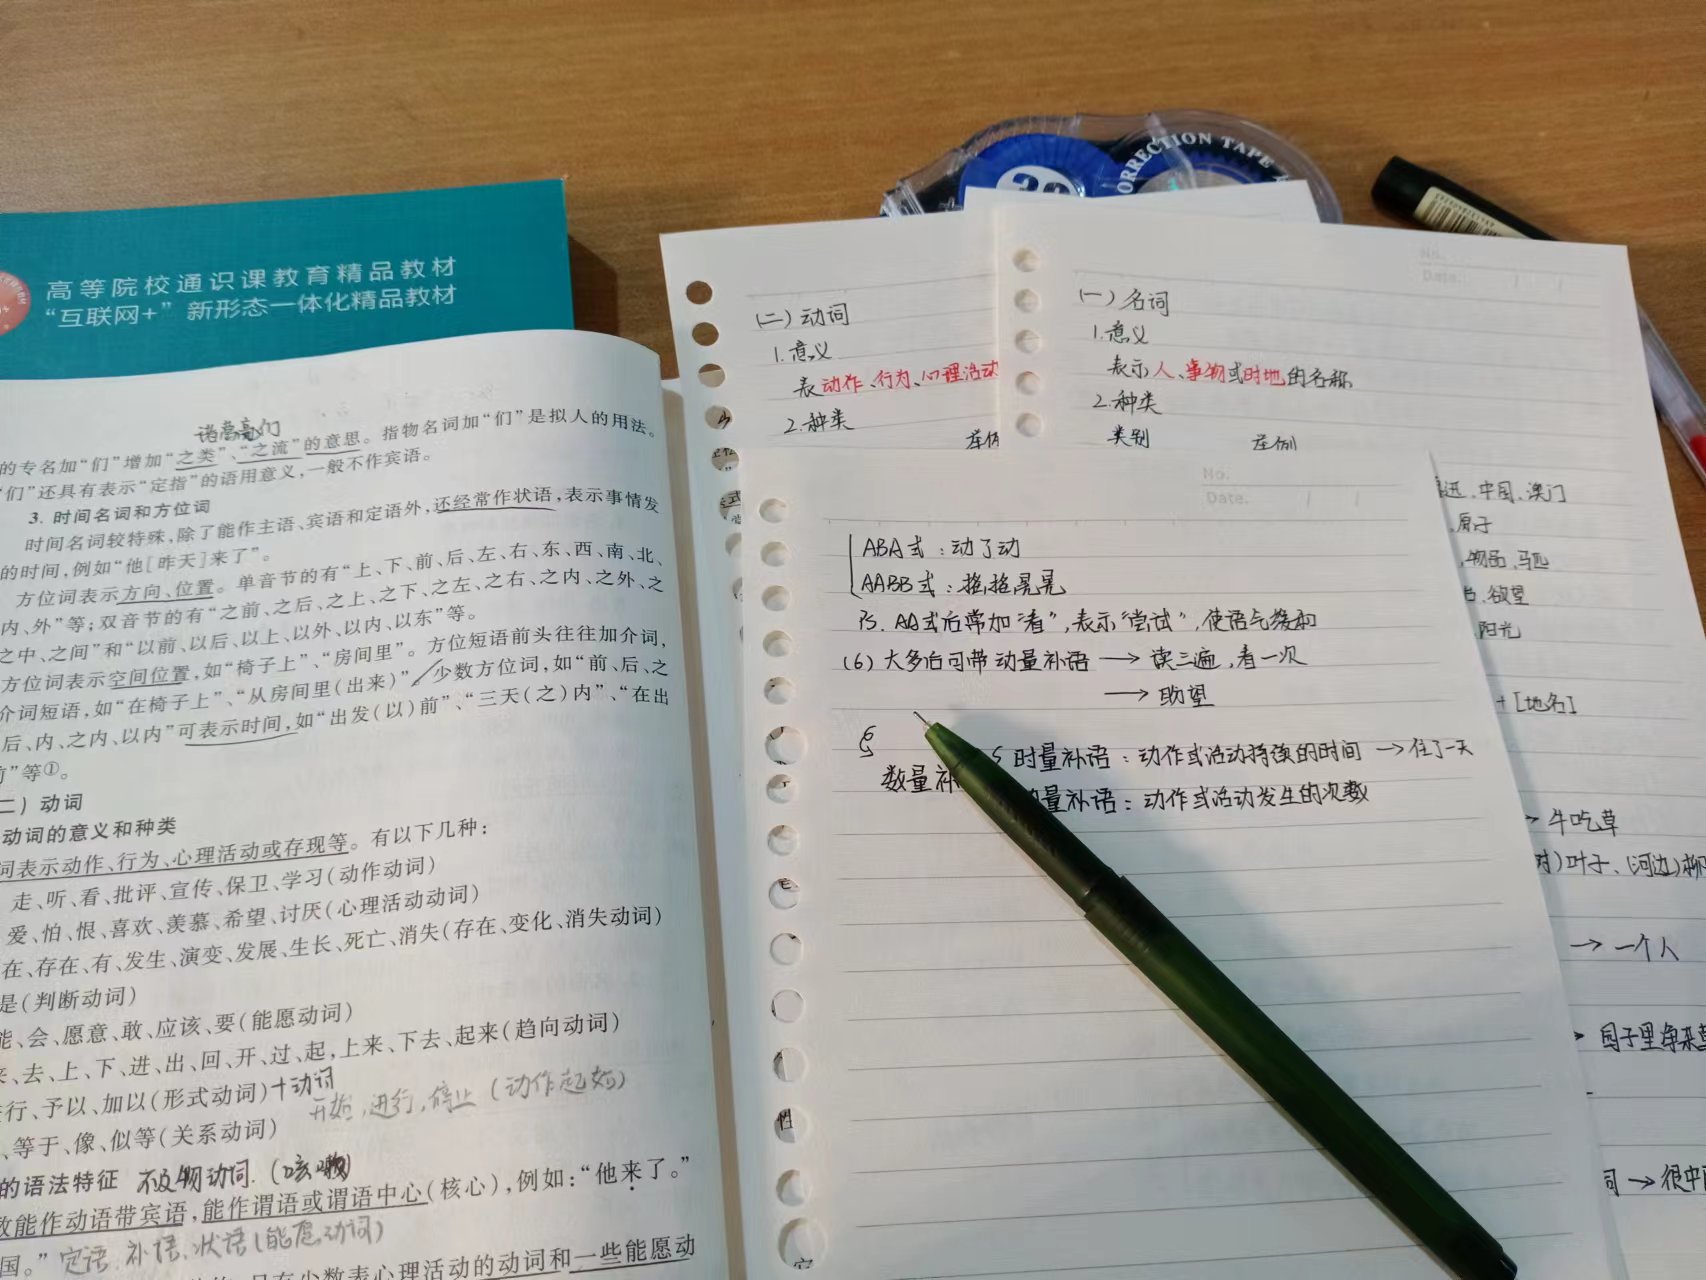 高等院校通识课教育精品教材
“互联网+”新形态一体化精品教材
诸葛亮们
的专名加“们”增加“之类”、“之流”的意思。指物名词加“们”是拟人的用法。
“们”还具有表示“定指”的语用意义，一般不作宾语。
3. 时间名词和方位词
时间名词较特殊，除了能作主语、宾语和定语外，还经常作状语，表示事情发
的时间，例如“他[昨天]来了”。
方位词表示方向、位置。单音节的有“上、下、前、后、左、右、东、西、南、北、
内、外”等；双音节的有“之前、之后、之上、之下、之左、之右、之内、之外、之
之中、之间”和“以前、以后、以上、以外、以内、以东”等。
方位词表示空间位置，如“椅子上”、“房间里”。方位短语前头往往加介词，
介词短语，如“在椅子上”、“从房间里(出来)”。少数方位词，如“前、后、之
后、内、之内、以内”可表示时间，如“出发(以)前”、“三天(之)内”、“在出
前”等①。
二）动词
动词的意义和种类
词表示动作、行为、心理活动或存现等。有以下几种：
走、听、看、批评、宣传、保卫、学习(动作动词)
爱、怕、恨、喜欢、羡慕、希望、讨厌(心理活动动词)
在、存在、有、发生、演变、发展、生长、死亡、消失(存在、变化、消失动词)
是(判断动词)
能、会、愿意、敢、应该、要(能愿动词)
来、去、上、下、进、出、回、开、过、起，上来、下去、起来(趋向动词)
进行、予以、加以(形式动词)+动词
开始，进行，停止(动作起始)
、等于、像、似等(关系动词)
的语法特征 不及物动词.(咳嗽)
数能作动语带宾语，能作谓语或谓语中心(核心)，例如：“他来了。”
国。”定语、补语、状语(能愿动词)
只有少数表心理活动的动词和一些能愿动
(二)动词
1.意义
表动作、行为、心理活动
2.种类
举例
(一)名词
1.意义
表示人、事物或时地的名称
2.种类
类别 举例
No.
Date.
ABA式：动了动
AABB式：摇摇晃晃
AA式后常加“看”，表示“尝试”，使语气缓和
(6)大多后可带动量补语→读三遍，看一次
→盼望
数量补
时量补语：动作或活动持续的时间→住了一天
量补语：动作或活动发生的次数
迅、中国、澳门
、原子
、物品、马匹
、欲望
、阳光
+[地名]
→牛吃草
叶子、(河边)柳
→一个人
园子里净杂草
词→很中
CORRECTION TAPE